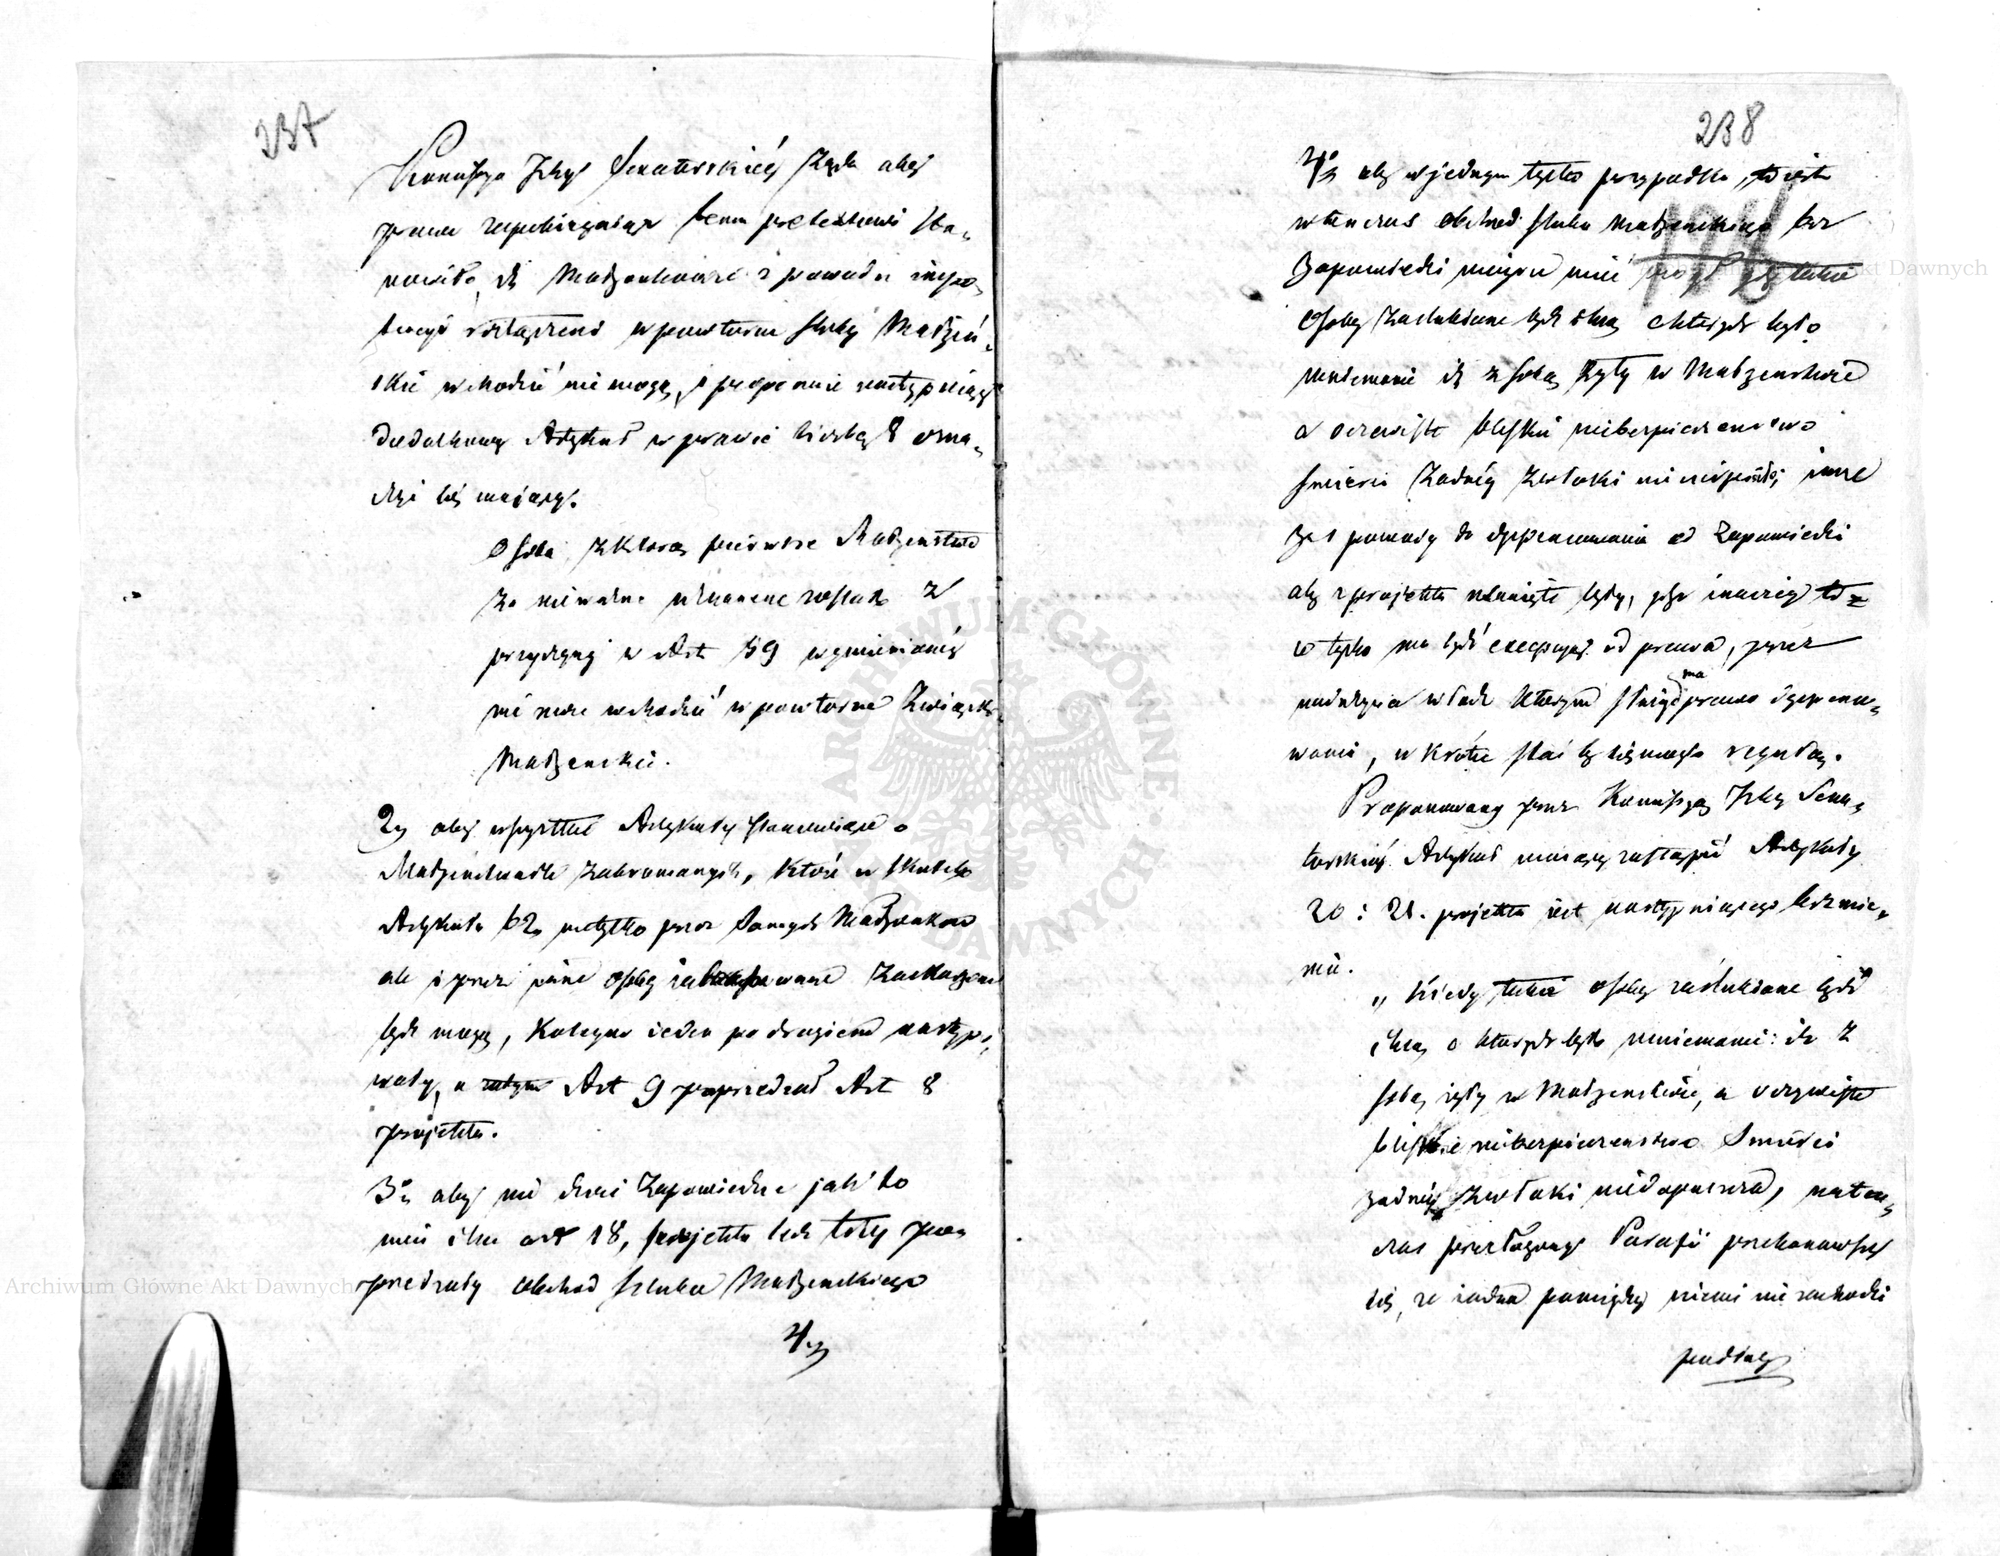 237
Kommissya Izby Senatorskiéy Żąda aby
prawo zapobiegaiąc temu pretextowi sta-
nowiło, iż Małżonkowie z powodu impo-
tencyi rozłączeni w powtorne śluby Małżeń-
skie wchodzić nie mogą, i proponuie następuiący
dodatkowy Artykuł w prawie liczbę 8 ozna-
się maiący.
Osoba z którą pierwsze Małżeństwo
za nieważne uznane zostało z
przyczyny w Art 59 wymienionéy
nie może wchodzić w powtorne Związki
Małżeńskie.
2o aby wszystkie Artykuły stanowiące o
Małżeństwach zabronionych, które w skutek
Artykułu 62 nietylko przez samych Małżonków
ale i przez inne osoby interessowane zaskarżone
bydź mogą, koleyno ieden po drugiem następo-
wały, a Art 9 poprzedzał Art 8
projektu.
3o aby nie dwie Zapowiedzie jak to
mieć chce art 18, projektu lecz trzy po-
przedzały obchod ślubu Małżeńskiego
4o
238
4o aby w jednym tylko przypadku, to iest
wtenczas obchod ślubu Małżeńskiego bez
Zapowiedzi mieysce mieć mogł gdy takie
Osoby zaślubione bydź chcą o których było
mniemanie iż z sobą żyły w Małżeństwie
a oczewiste bliskie niebezpieczeństwo
śmierci żadnéy zwłoki nie inne
zaś powody do dyspensowania od Zapowiedzi
aby z projektu usunięte były, gdyż inaczéy to
co tylko ma bydź excepcyą od prawa, przez
nadużycia władz którym służyć ma prawo dyspenso-
wania, w krótce stać by się mogło regułą.
Proponowany przez Kommissyą Izby Sena-
torskiéy Artykuł maiący zastąpić Artykuły
20 i 21. projektu iest następuiącego brzmie-
nia.
„ Kiedy takie osoby zaślubione bydź
chcą o których było mniemanie: iż z
sobą żyły w Małżeństwie, a oczywiste
bliskie niebezpieczeństwo śmierci
żadnéy zwłoki niedopuszcza, naten-
czas przełożony Parafii przekonawszy
się, że żadna pomiędzy niemi nie zachodzi